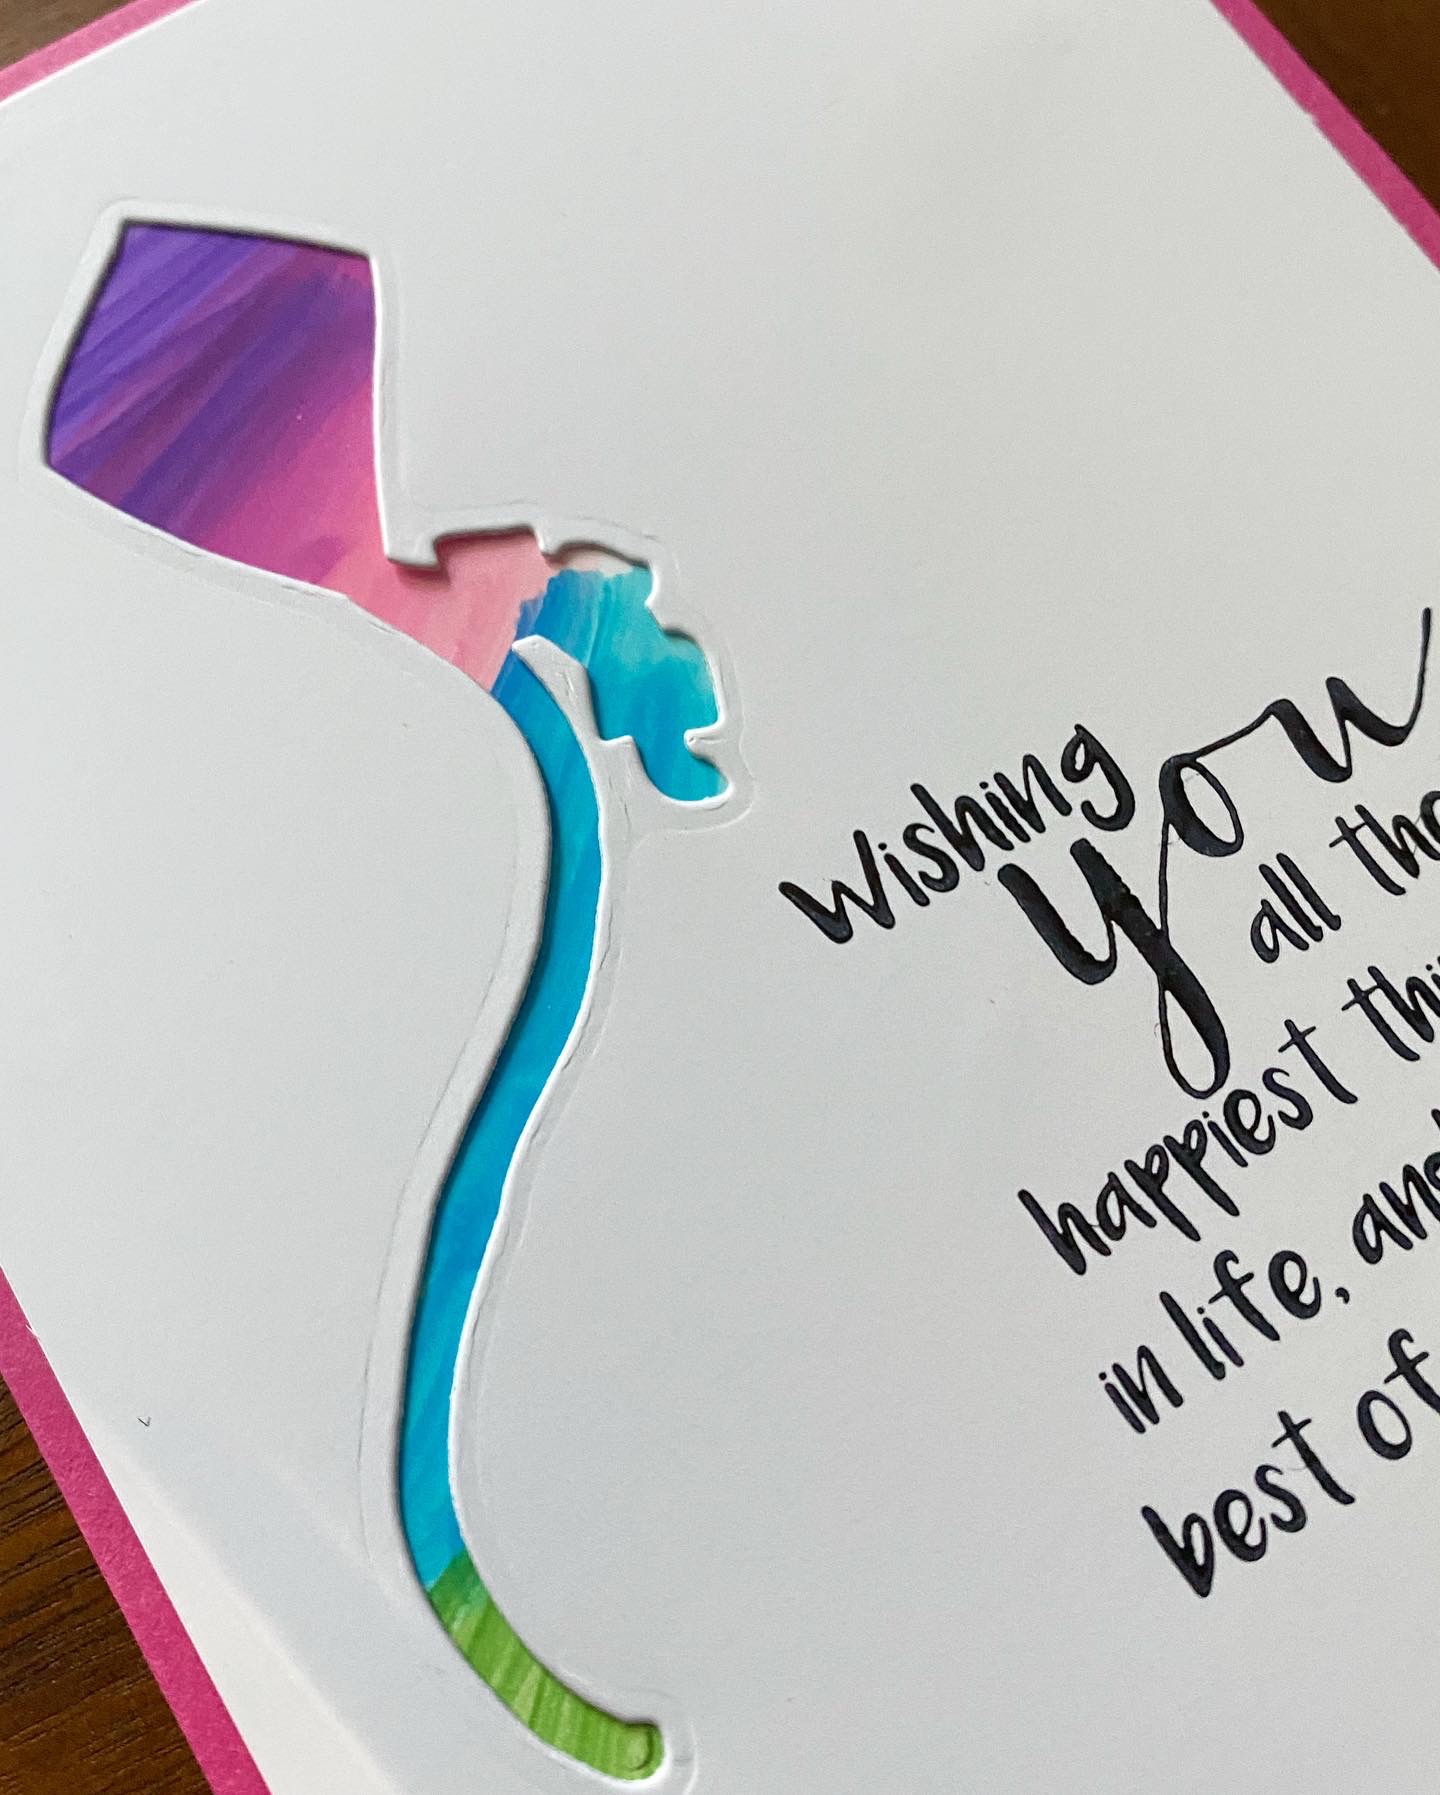 Wishing
you
all
happiest
in life,
best of